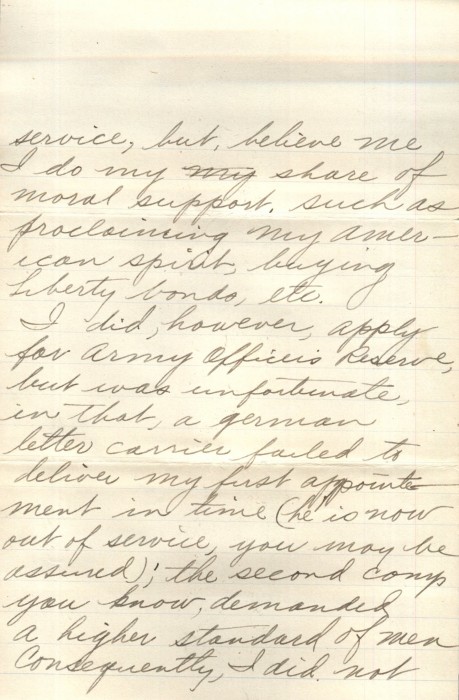 service, but, believe me
I do my my share of
moral support, such as
proclaiming my Amer-
ican spirit, buying
Liberty bonds, etc.
I did, however, apply
for Army Officers Reserve,
but was unfortunate,
in that, a german
letter carrier failed to
deliver my first appoint-
ment in time (he is now
out of service, you may be
assured); the second camp
you know, demanded
a higher standard of men
Consequently, I did not